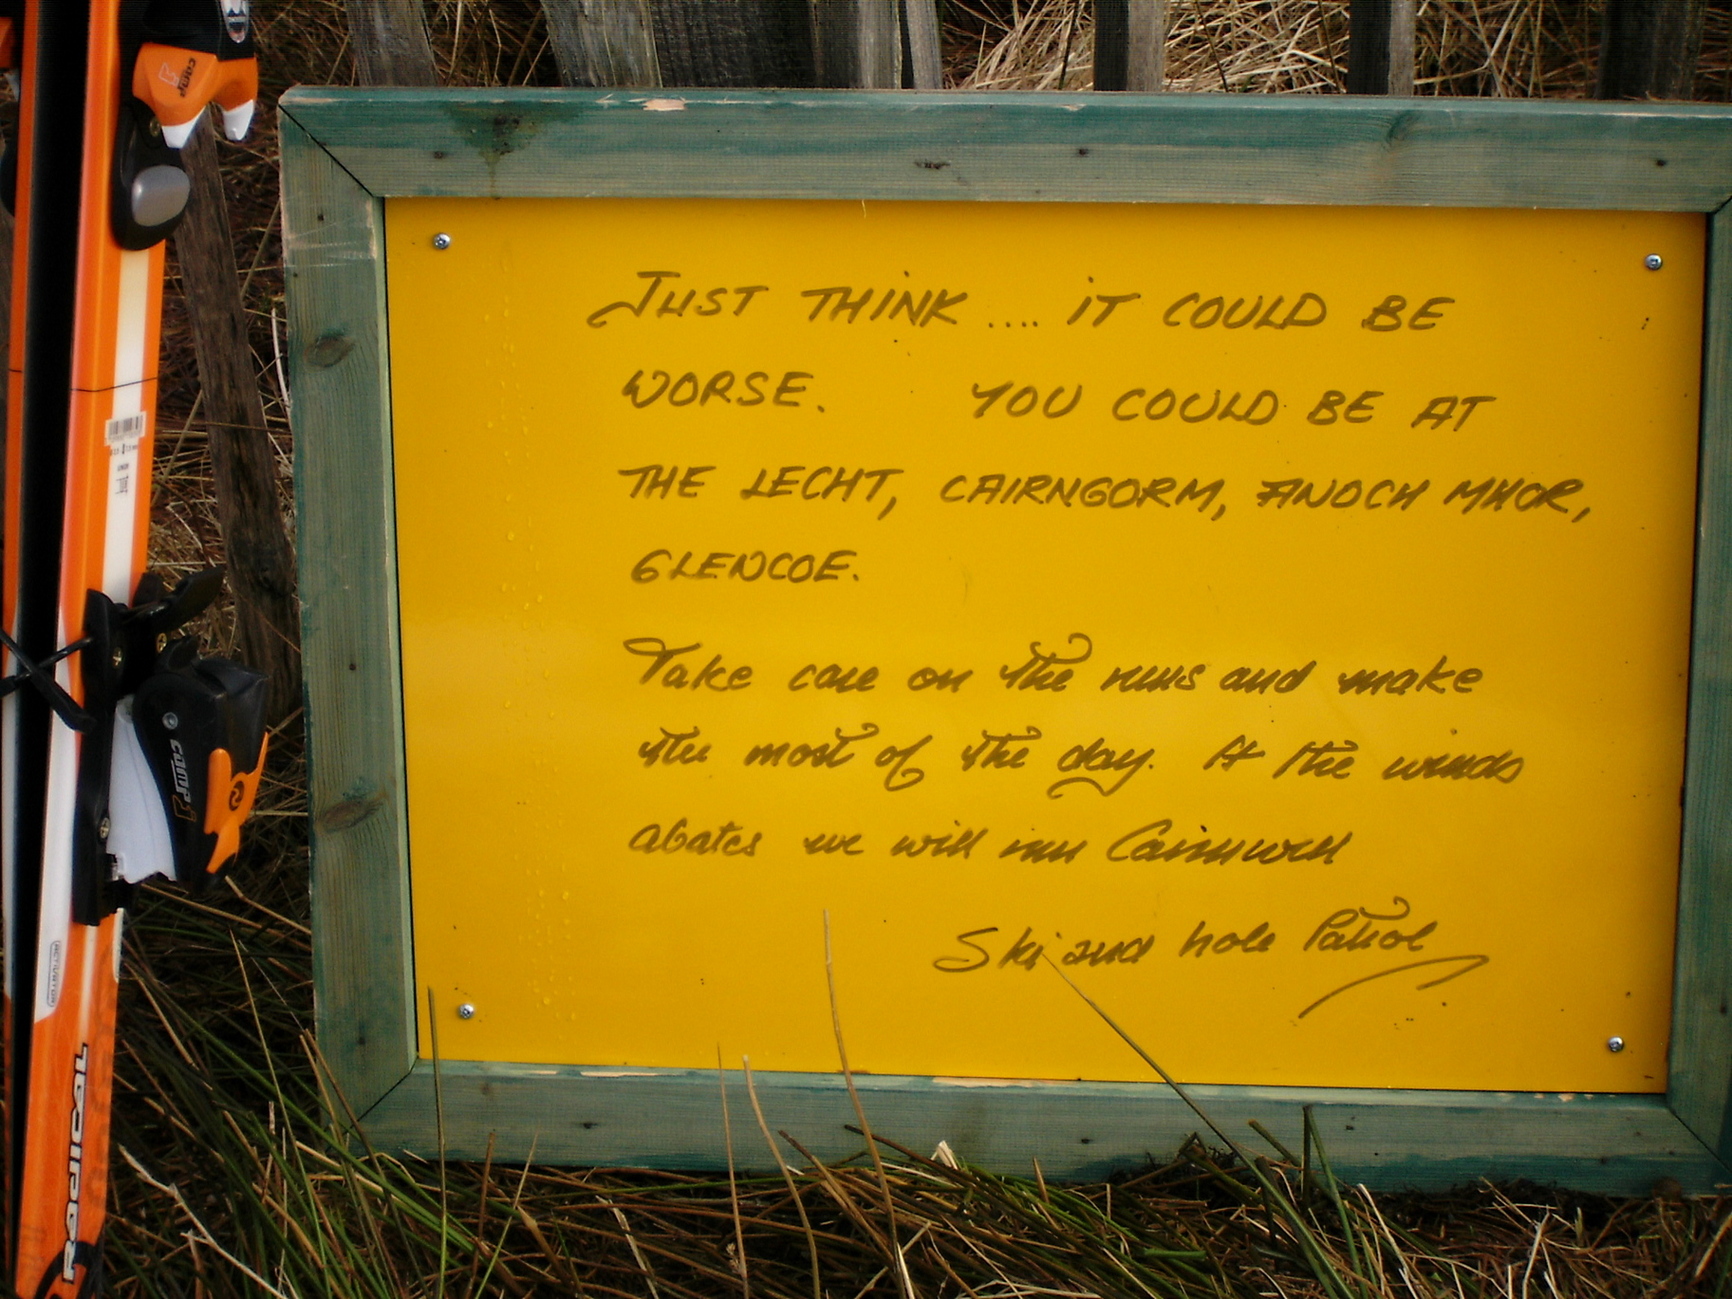 JUST THINK .... iT COULD BE
WORSE. YOU COULD BE AT
THE LECHT, CAIRNGORM, ANOCH MHOR,
GLENCOE.
Take care on the runs and make
the most of the day. If the winds
abates we will run Cairnwell
Ski and hole Patrol
comp
comp
ACTIVATOR
Radical